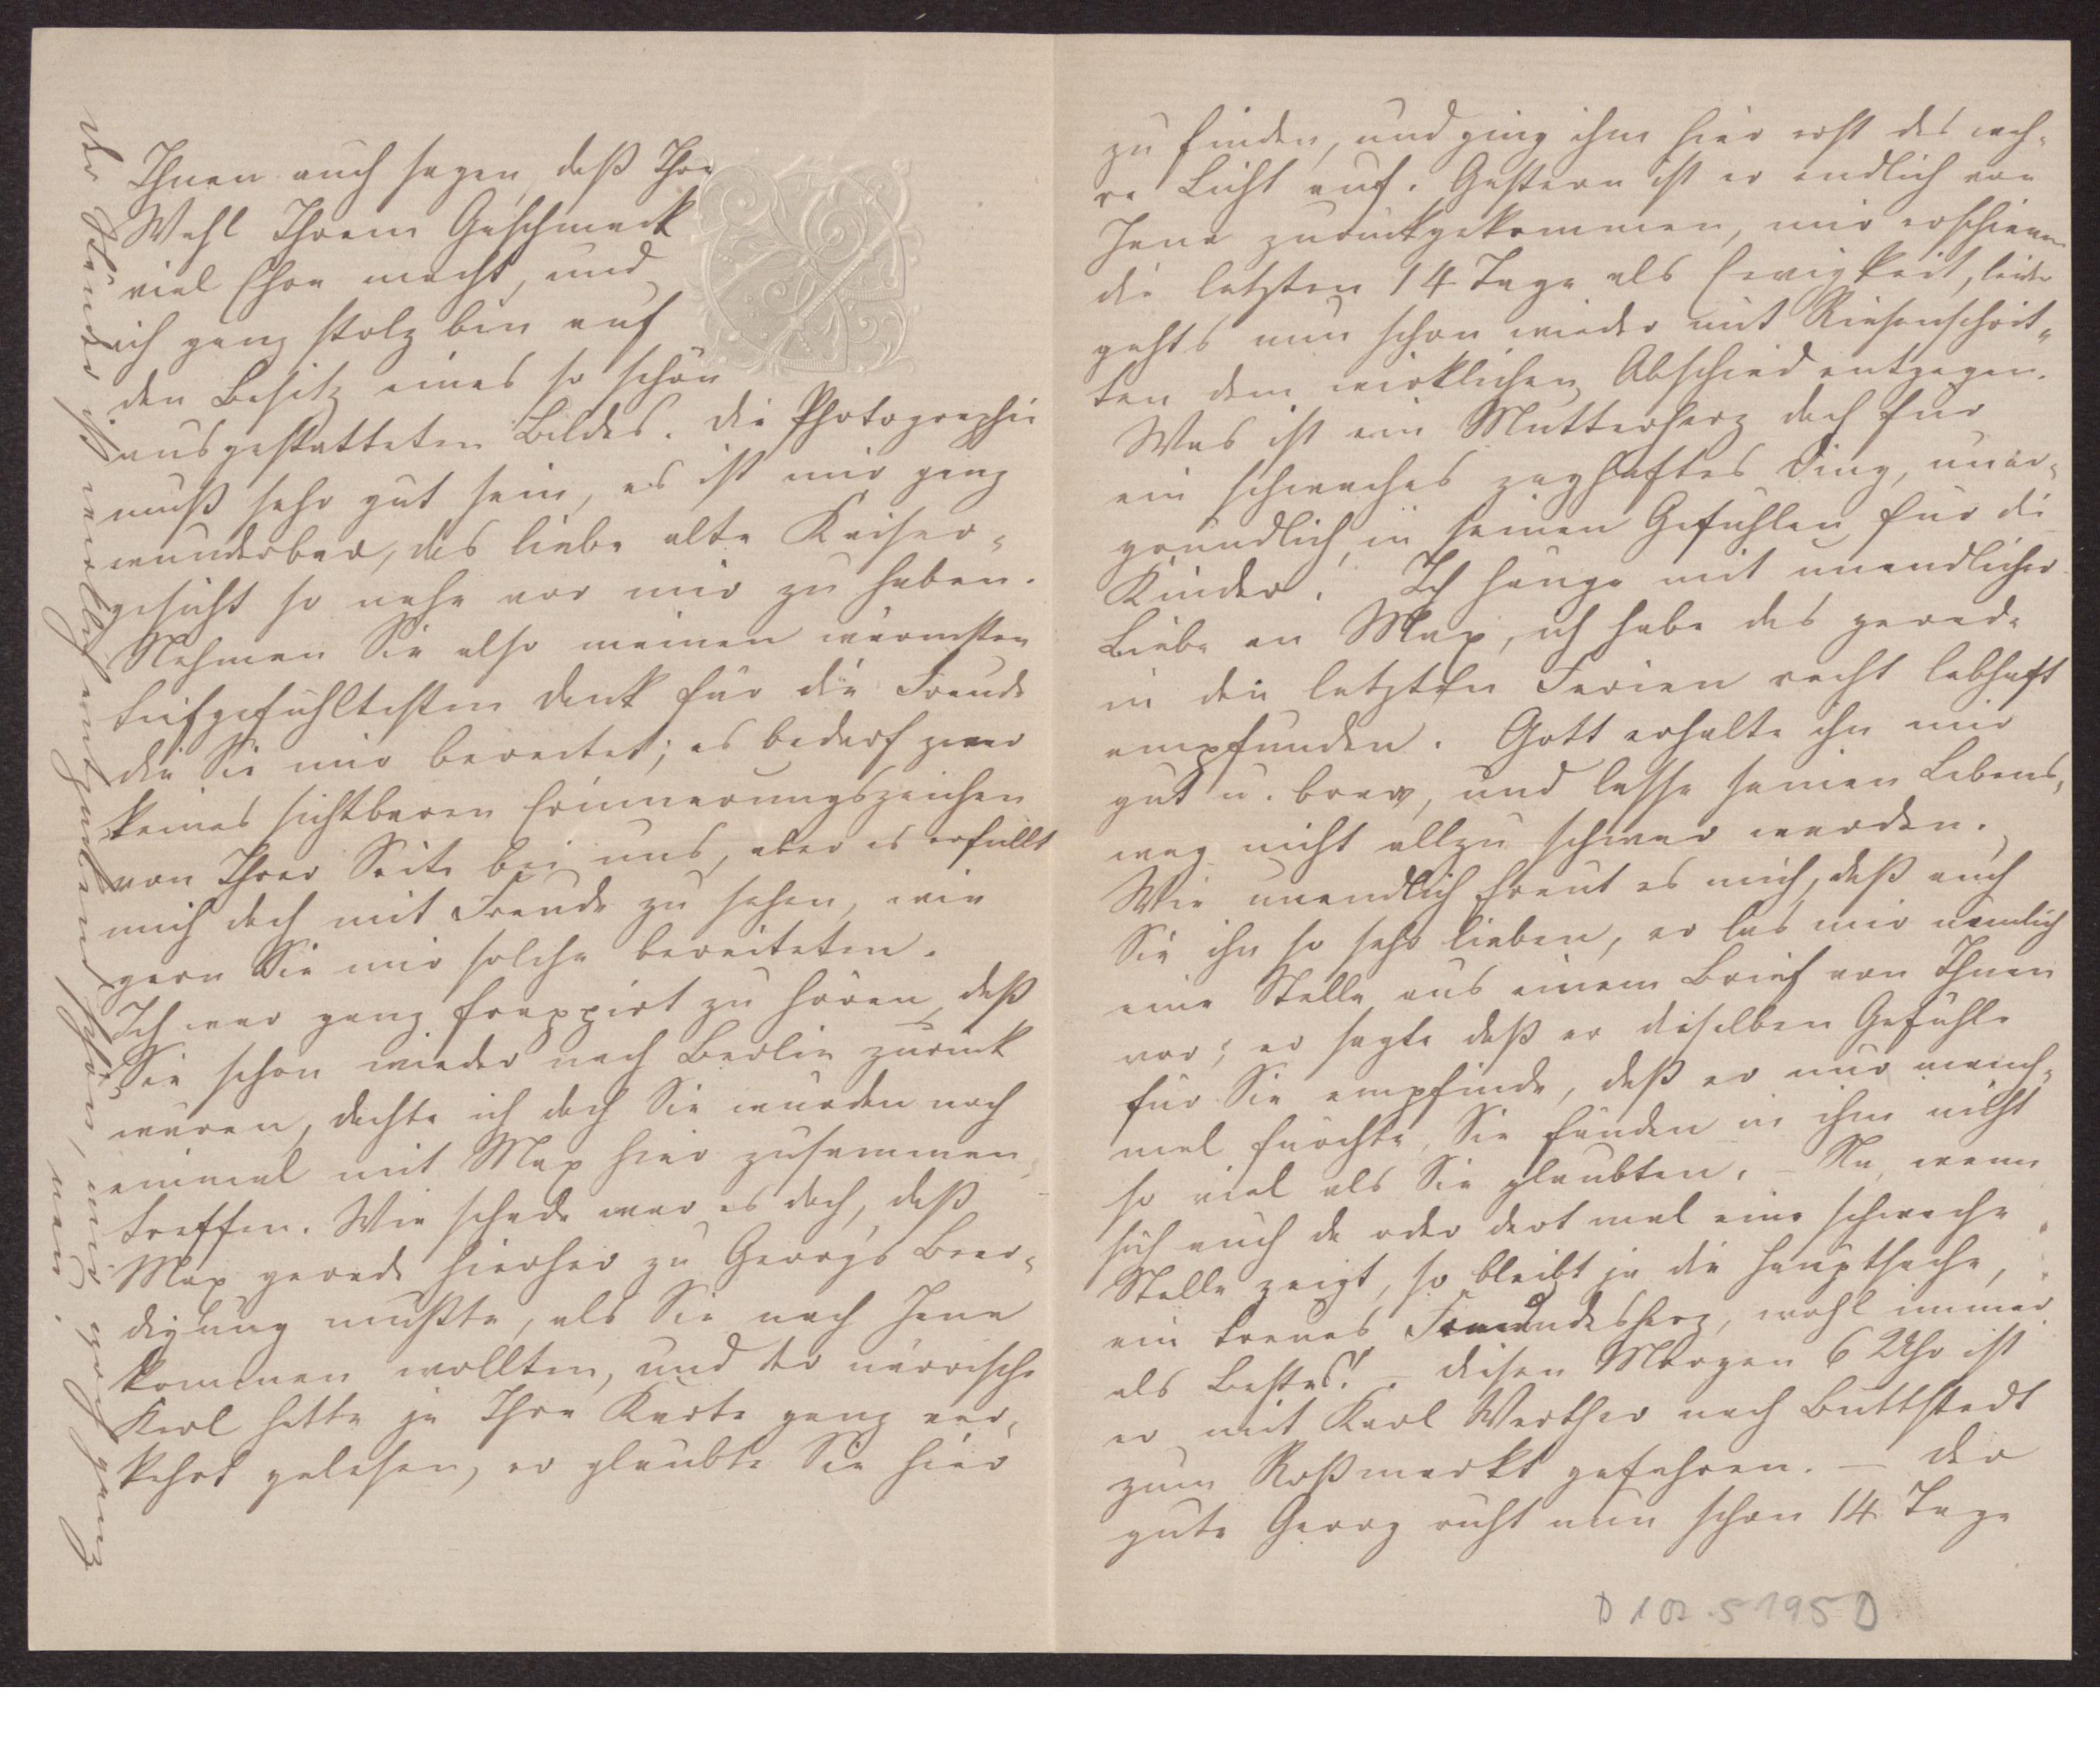 Ihnen auch sagen, daß Ihre
Wahl Ihrem Geschmack
viel Ehre macht, und
ich ganz stolz bin auf
den Besitz eines so schön
ausgestatteten Bildes. Die Photographie
muß sehr gut sein, es ist mir ganz
wunderbar, das liebe alte Kaiser-
gesicht so nahe vor mir zu haben.
Nehmen Sie also meinen wärmsten
tiefgefühltesten Dank für die Freude
die Sie mir bereitet; es bedarf zwar
keines sichtbaren Erinnerungszeichen
von Ihrer Seite bei uns, aber es erfüllt
mich doch mit Freude zu sehen, wie
gern Sie mir solche bereiteten.
Ich war ganz frappirt zu hören, daß
Sie schon wieder nach Berlin zurück
waren, dachte ich doch Sie würden noch
einmal mit Max hier zusammen-
treffen. Wie schade war es doch, daß
Max gerade hierher zu Georgs Beer-
digung mußte, als Sie nach Jena
kommen wollten, und der närrische
Kerl hatte ja Ihre Karte ganz ver-
kehrt gelesen, er glaubte Sie hier
der Ständer ist wirklich entzückend schön, mir noch ganz
neu.
zu finden, und ging ihm hier erst das wah-
re Licht auf. Gestern ist er endlich von
Jena zurückgekommen, mir erschienen
die letzten 14 Tage als Ewigkeit, leider
gehts nun schon wieder mit Riesenschrit-
ten dem wirklichen Abschied entgegen.
Was ist ein Mutterherz doch für
ein schwaches zaghaftes Ding, uner-
gründlich in seinen Gefühlen für die
Kinder! Ich hänge mit unendlicher
Liebe an Max, ich habe das gerade
in den letzten Ferien recht lebhaft
empfunden. Gott erhalte ihn mir
gut u. brav, und lasse seinen Lebens-
weg nicht allzu schwer werden.
Wie unendlich freut es mich, daß auch
Sie ihn so sehr lieben, er las mir nämlich
eine Stelle aus einem Brief von Ihnen
vor; er sagte daß er dieselben Gefühle
für Sie empfinde, daß er nur manch-
mal fürchte, Sie fänden in ihm nicht
so viel als Sie glaubten. – Na, wenn
sich auch da oder dort mal eine schwache
Stelle zeigt, so bleibt ja die Hauptsache,
ein treues Freundesherz, wohl immer
als Bestes! – Diesen Morgen 6 Uhr ist
er mit Karl Werther nach Buttstedt
zum Roßmarkt gefahren. – Der
gute Georg ruht nun schon 14 Tage